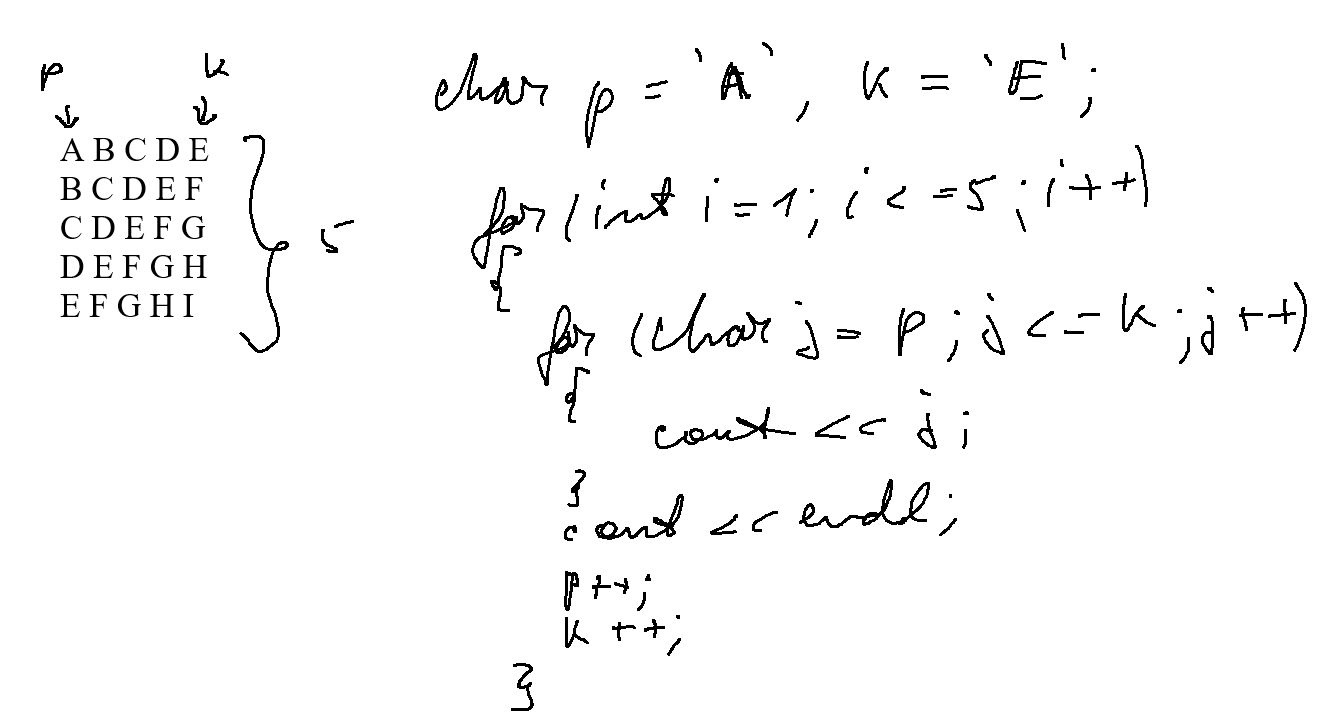 p k
A B C D E
B C D E F
C D E F G
D E F G H
E F G H I
5
char p = 'A', k = 'E';
for (int i = 1; i <= 5; i++)
{
for (char j = p; j <= k; j++)
{
cout << j;
}
cout << endl;
p++;
k++;
}